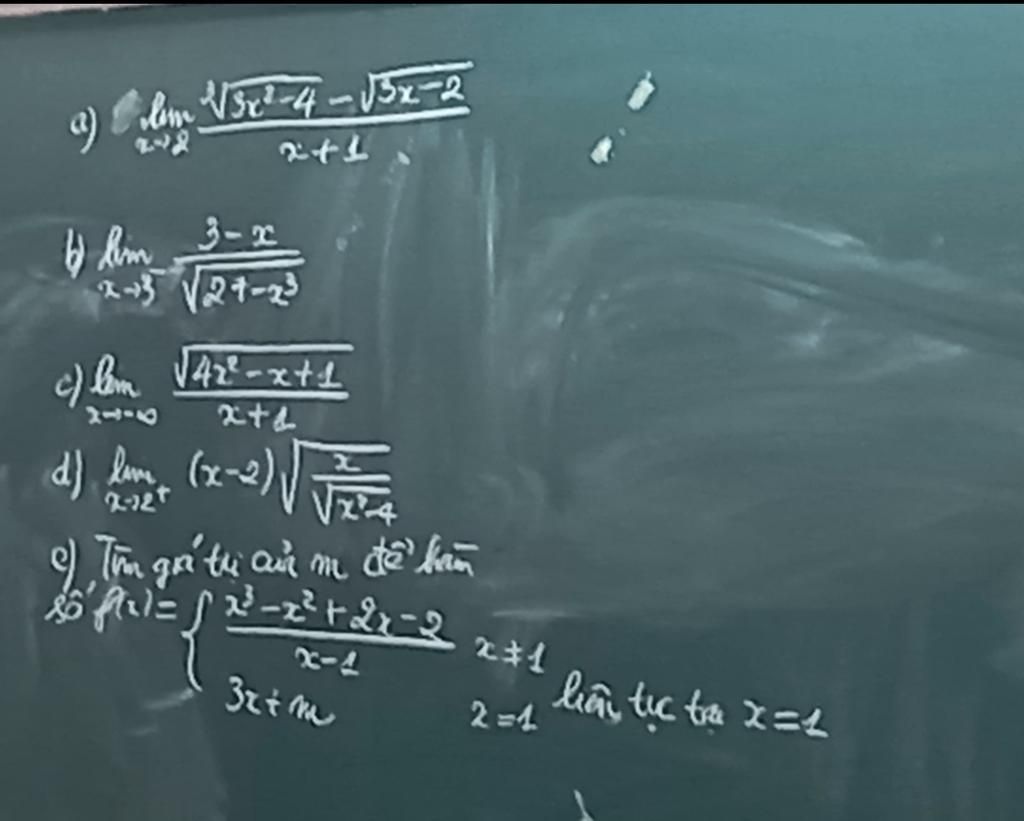 a) lim x→2 (∛(3x²-4) - √(3x-2)) / (x+1)
b) lim x→3⁻ (3-x) / √(27-x³)
c) lim x→-∞ √(4x²-x+1) / (x+1)
d) lim x→2⁺ (x-2) √(x / √(x²-4))
e) Tìm giá trị của m để hàm
số f(x) = { (x³-x²+2x-2) / (x-1) x≠1
3x+m x=1 liên tục tại x=1